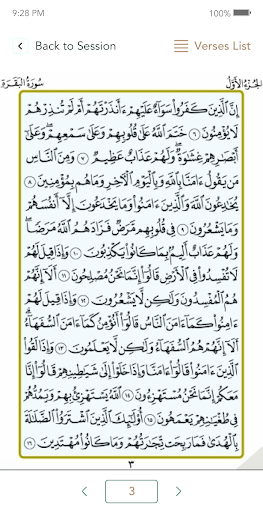 9:28 PM
100%
Back to Session
Verses List
سُورَةُ الْبَقَرَةِ
الجُزءُ الأَوَّلُ
إِنَّ الَّذِينَ كَفَرُوا سَوَاءٌ عَلَيْهِمْ ءَأَنذَرْتَهُمْ أَمْ لَمْ تُنذِرْهُمْ
لَا يُؤْمِنُونَ ٦ خَتَمَ اللَّهُ عَلَىٰ قُلُوبِهِمْ وَعَلَىٰ سَمْعِهِمْ ۖ وَعَلَىٰ
أَبْصَارِهِمْ غِشَاوَةٌ ۖ وَلَهُمْ عَذَابٌ عَظِيمٌ ٧ وَمِنَ النَّاسِ
مَن يَقُولُ ءَامَنَّا بِاللَّهِ وَبِالْيَوْمِ الْآخِرِ وَمَا هُم بِمُؤْمِنِينَ ٨
يُخَادِعُونَ اللَّهَ وَالَّذِينَ ءَامَنُوا وَمَا يَخْدَعُونَ إِلَّا أَنفُسَهُمْ
وَمَا يَشْعُرُونَ ٩ فِي قُلُوبِهِم مَّرَضٌ فَزَادَهُمُ اللَّهُ مَرَضًا ۖ
وَلَهُمْ عَذَابٌ أَلِيمٌ بِمَا كَانُوا يَكْذِبُونَ ١٠ وَإِذَا قِيلَ لَهُمْ
لَا تُفْسِدُوا فِي الْأَرْضِ قَالُوا إِنَّمَا نَحْنُ مُصْلِحُونَ ١١ أَلَا إِنَّهُمْ
هُمُ الْمُفْسِدُونَ وَلَٰكِن لَّا يَشْعُرُونَ ١٢ وَإِذَا قِيلَ لَهُمْ
ءَامِنُوا كَمَا ءَامَنَ النَّاسُ قَالُوا أَنُؤْمِنُ كَمَا ءَامَنَ السُّفَهَاءُ ۗ
أَلَا إِنَّهُمْ هُمُ السُّفَهَاءُ وَلَٰكِن لَّا يَعْلَمُونَ ١٣ وَإِذَا لَقُوا
الَّذِينَ ءَامَنُوا قَالُوا ءَامَنَّا وَإِذَا خَلَوْا إِلَىٰ شَيَاطِينِهِمْ قَالُوا إِنَّا
مَعَكُمْ إِنَّمَا نَحْنُ مُسْتَهْزِءُونَ ١٤ اللَّهُ يَسْتَهْزِئُ بِهِمْ وَيَمُدُّهُمْ
فِي طُغْيَانِهِمْ يَعْمَهُونَ ١٥ أُولَٰئِكَ الَّذِينَ اشْتَرَوُا الضَّلَالَةَ
بِالْهُدَىٰ فَمَا رَبِحَت تِّجَارَتُهُمْ وَمَا كَانُوا مُهْتَدِينَ ١٦
٣
3